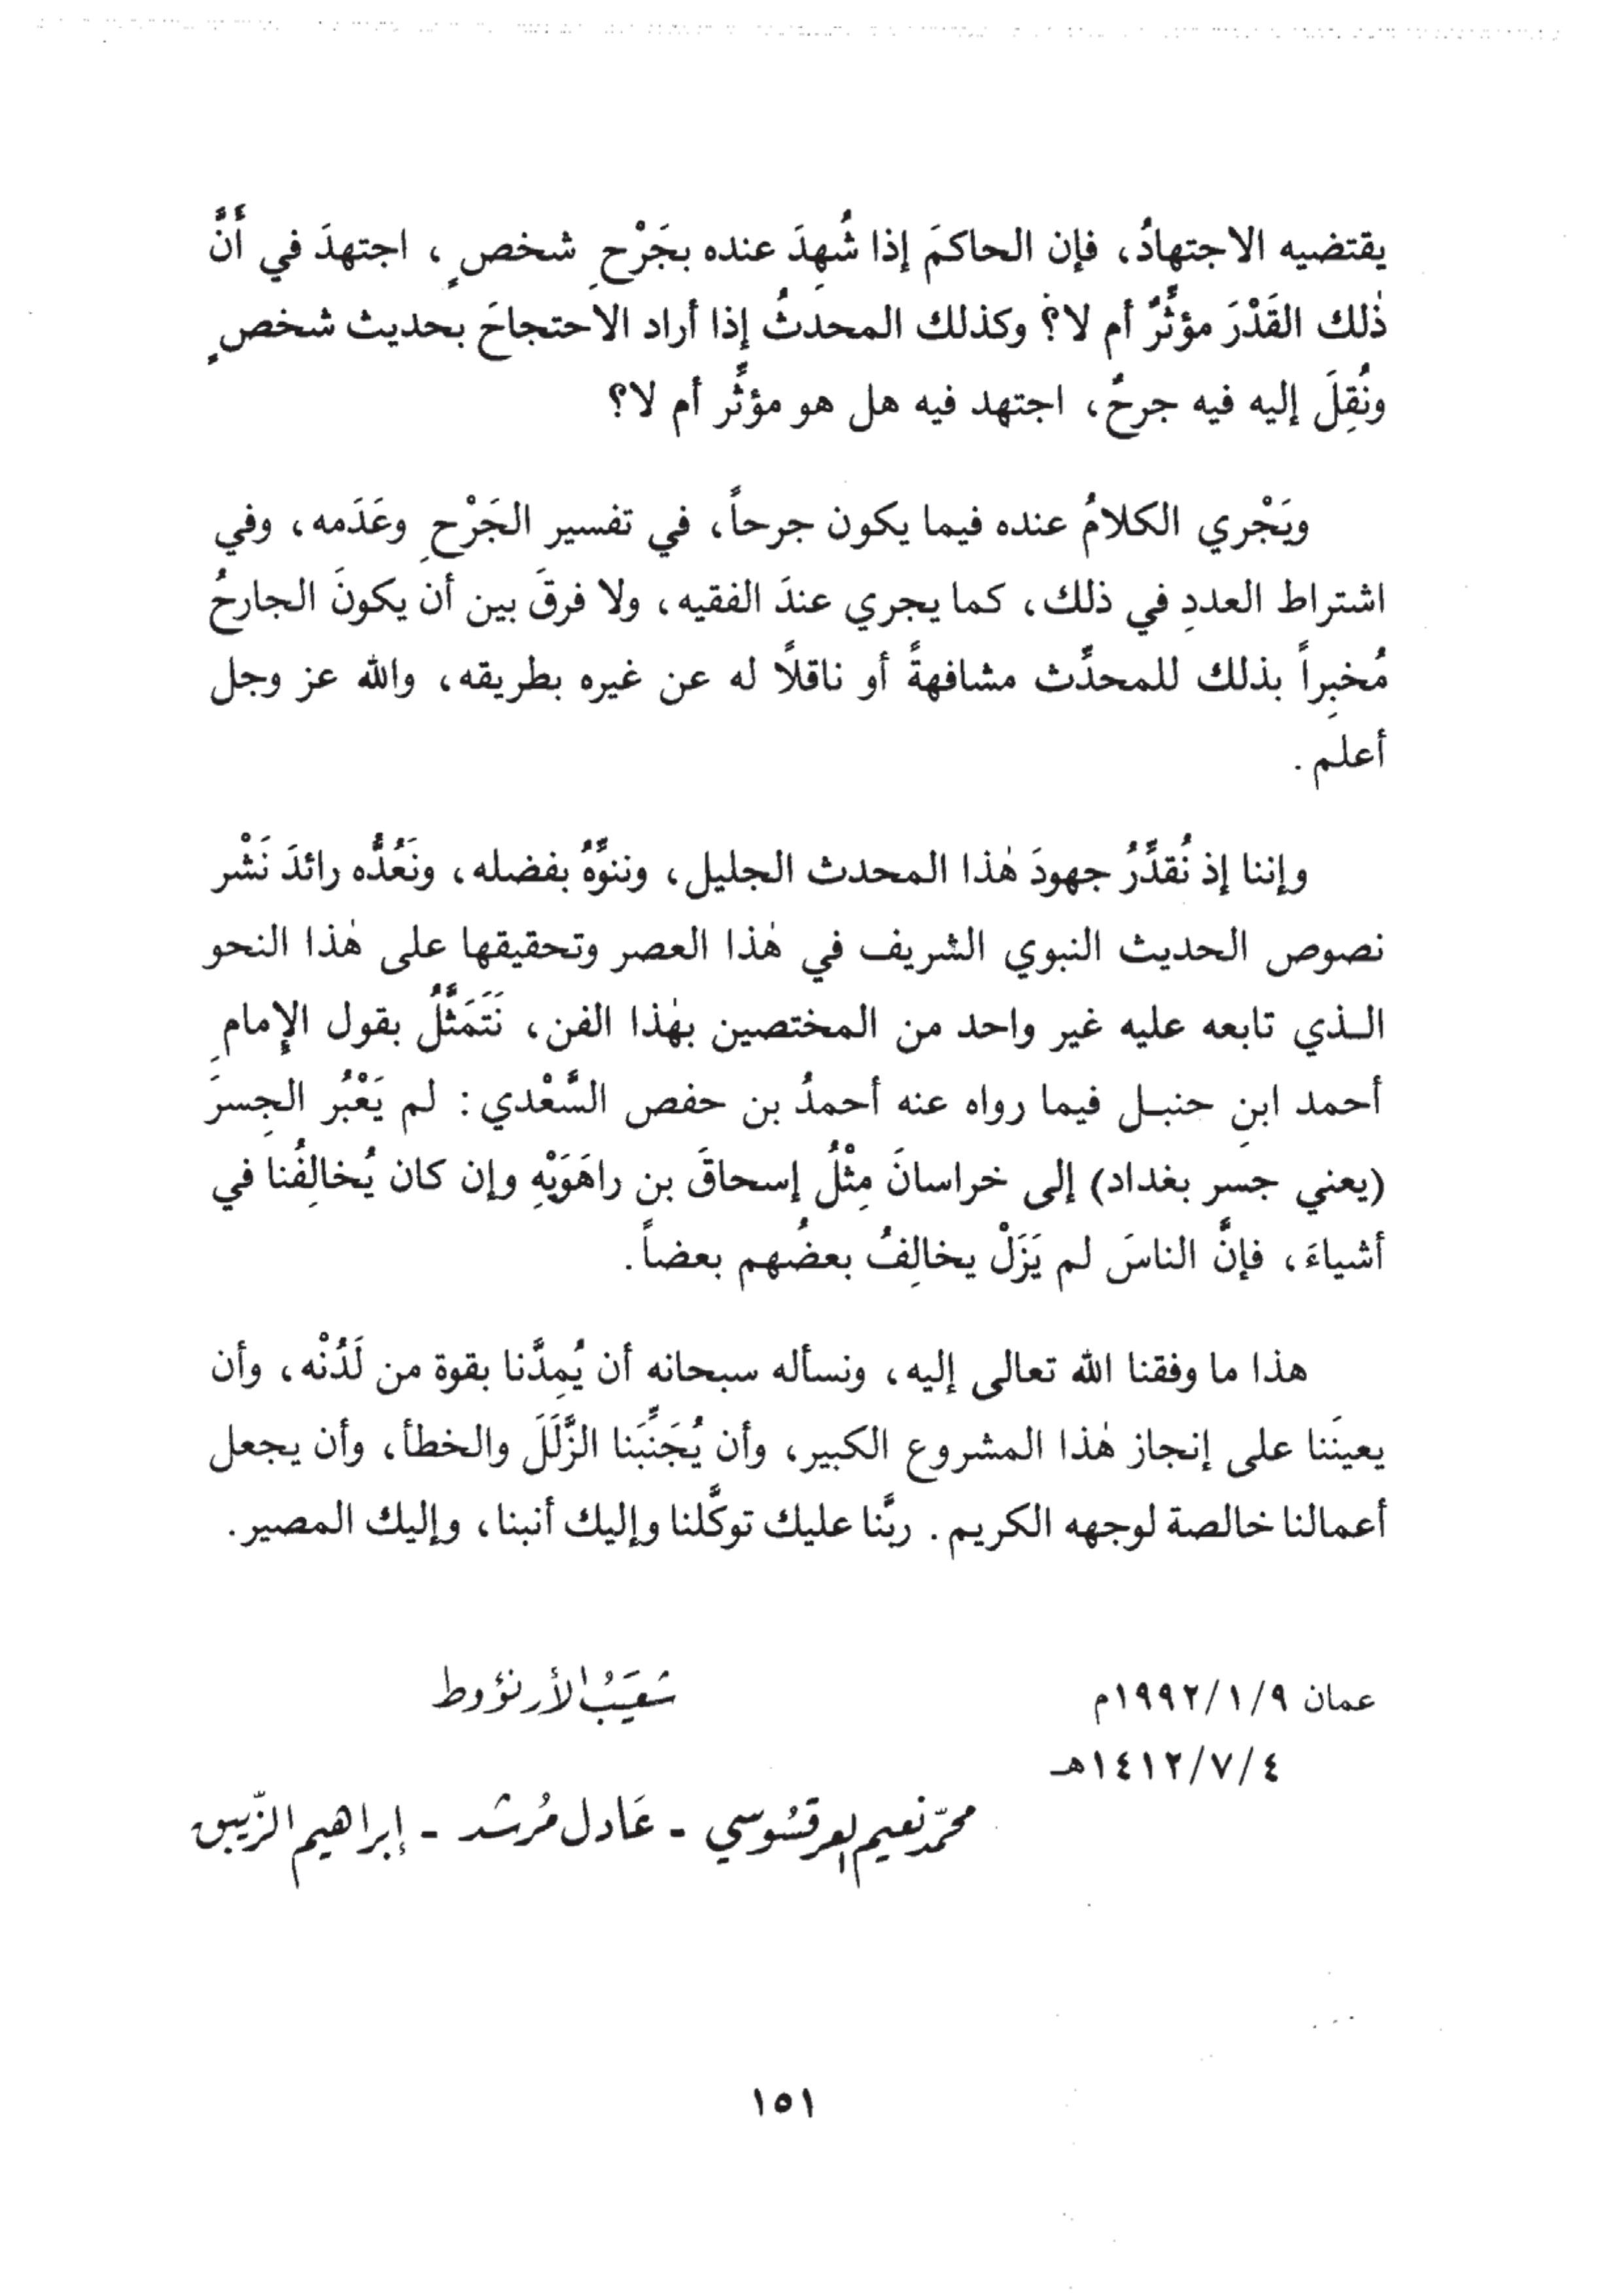 يقتضيه الاجتهادُ، فإن الحاكمَ إذا شُهِدَ عنده بجَرْحِ شخصٍ، اجتهدَ في أَنَّ
ذٰلك القَدْرَ مؤثِّرٌ أم لا؟ وكذلك المحدثُ إذا أراد الاحتجاجَ بحديث شخصٍ
ونُقِلَ إليه فيه جرحٌ، اجتهد فيه هل هو مؤثِّر أم لا؟
ويَجْري الكلامُ عنده فيما يكون جرحاً، في تفسير الجَرْحِ وعَدَمه، وفي
اشتراط العددِ في ذلك، كما يجري عندَ الفقيه، ولا فرقَ بين أن يكونَ الجارحُ
مُخبِراً بذلك للمحدِّث مشافهةً أو ناقلًا له عن غيره بطريقه، والله عز وجل
أعلم.
وإننا إذ نُقدِّرُ جهودَ هٰذا المحدث الجليل، وننوِّهُ بفضله، ونَعُدُّه رائدَ نَشْر
نصوص الحديث النبوي الشريف في هٰذا العصر وتحقيقها على هٰذا النحو
الـذي تابعه عليه غير واحد من المختصين بهٰذا الفن، نَتَمَثَّلُ بقول الإِمامِ
أحمد ابنِ حنبـل فيما رواه عنه أحمدُ بن حفص السَّعْدي: لم يَعْبُر الجِسرَ
(يعني جسر بغداد) إلى خراسانَ مِثْلُ إسحاقَ بن راهَوَيْهِ وإن كان يُخالِفُنا في
أشياءَ، فإنَّ الناسَ لم يَزَلْ يخالِفُ بعضُهم بعضاً.
هذا ما وفقنا الله تعالى إليه، ونسأله سبحانه أن يُمِدَّنا بقوة من لَدُنْه، وأن
يعينَنا على إنجاز هٰذا المشروع الكبير، وأن يُجَنِّبَنا الزَّلَلَ والخطأ، وأن يجعل
أعمالنا خالصة لوجهه الكريم. ربَّنا عليك توكَّلنا وإليك أنبنا، وإليك المصير.
عمان ١٩٩٢/١/٩م
شعَيبُ الأرنؤوط
١٤١٢/٧/٤هـ
محمّد نعيم العرقسُوسي - عَادل مُرشد - إبراهيم الزّيبق
١٥١